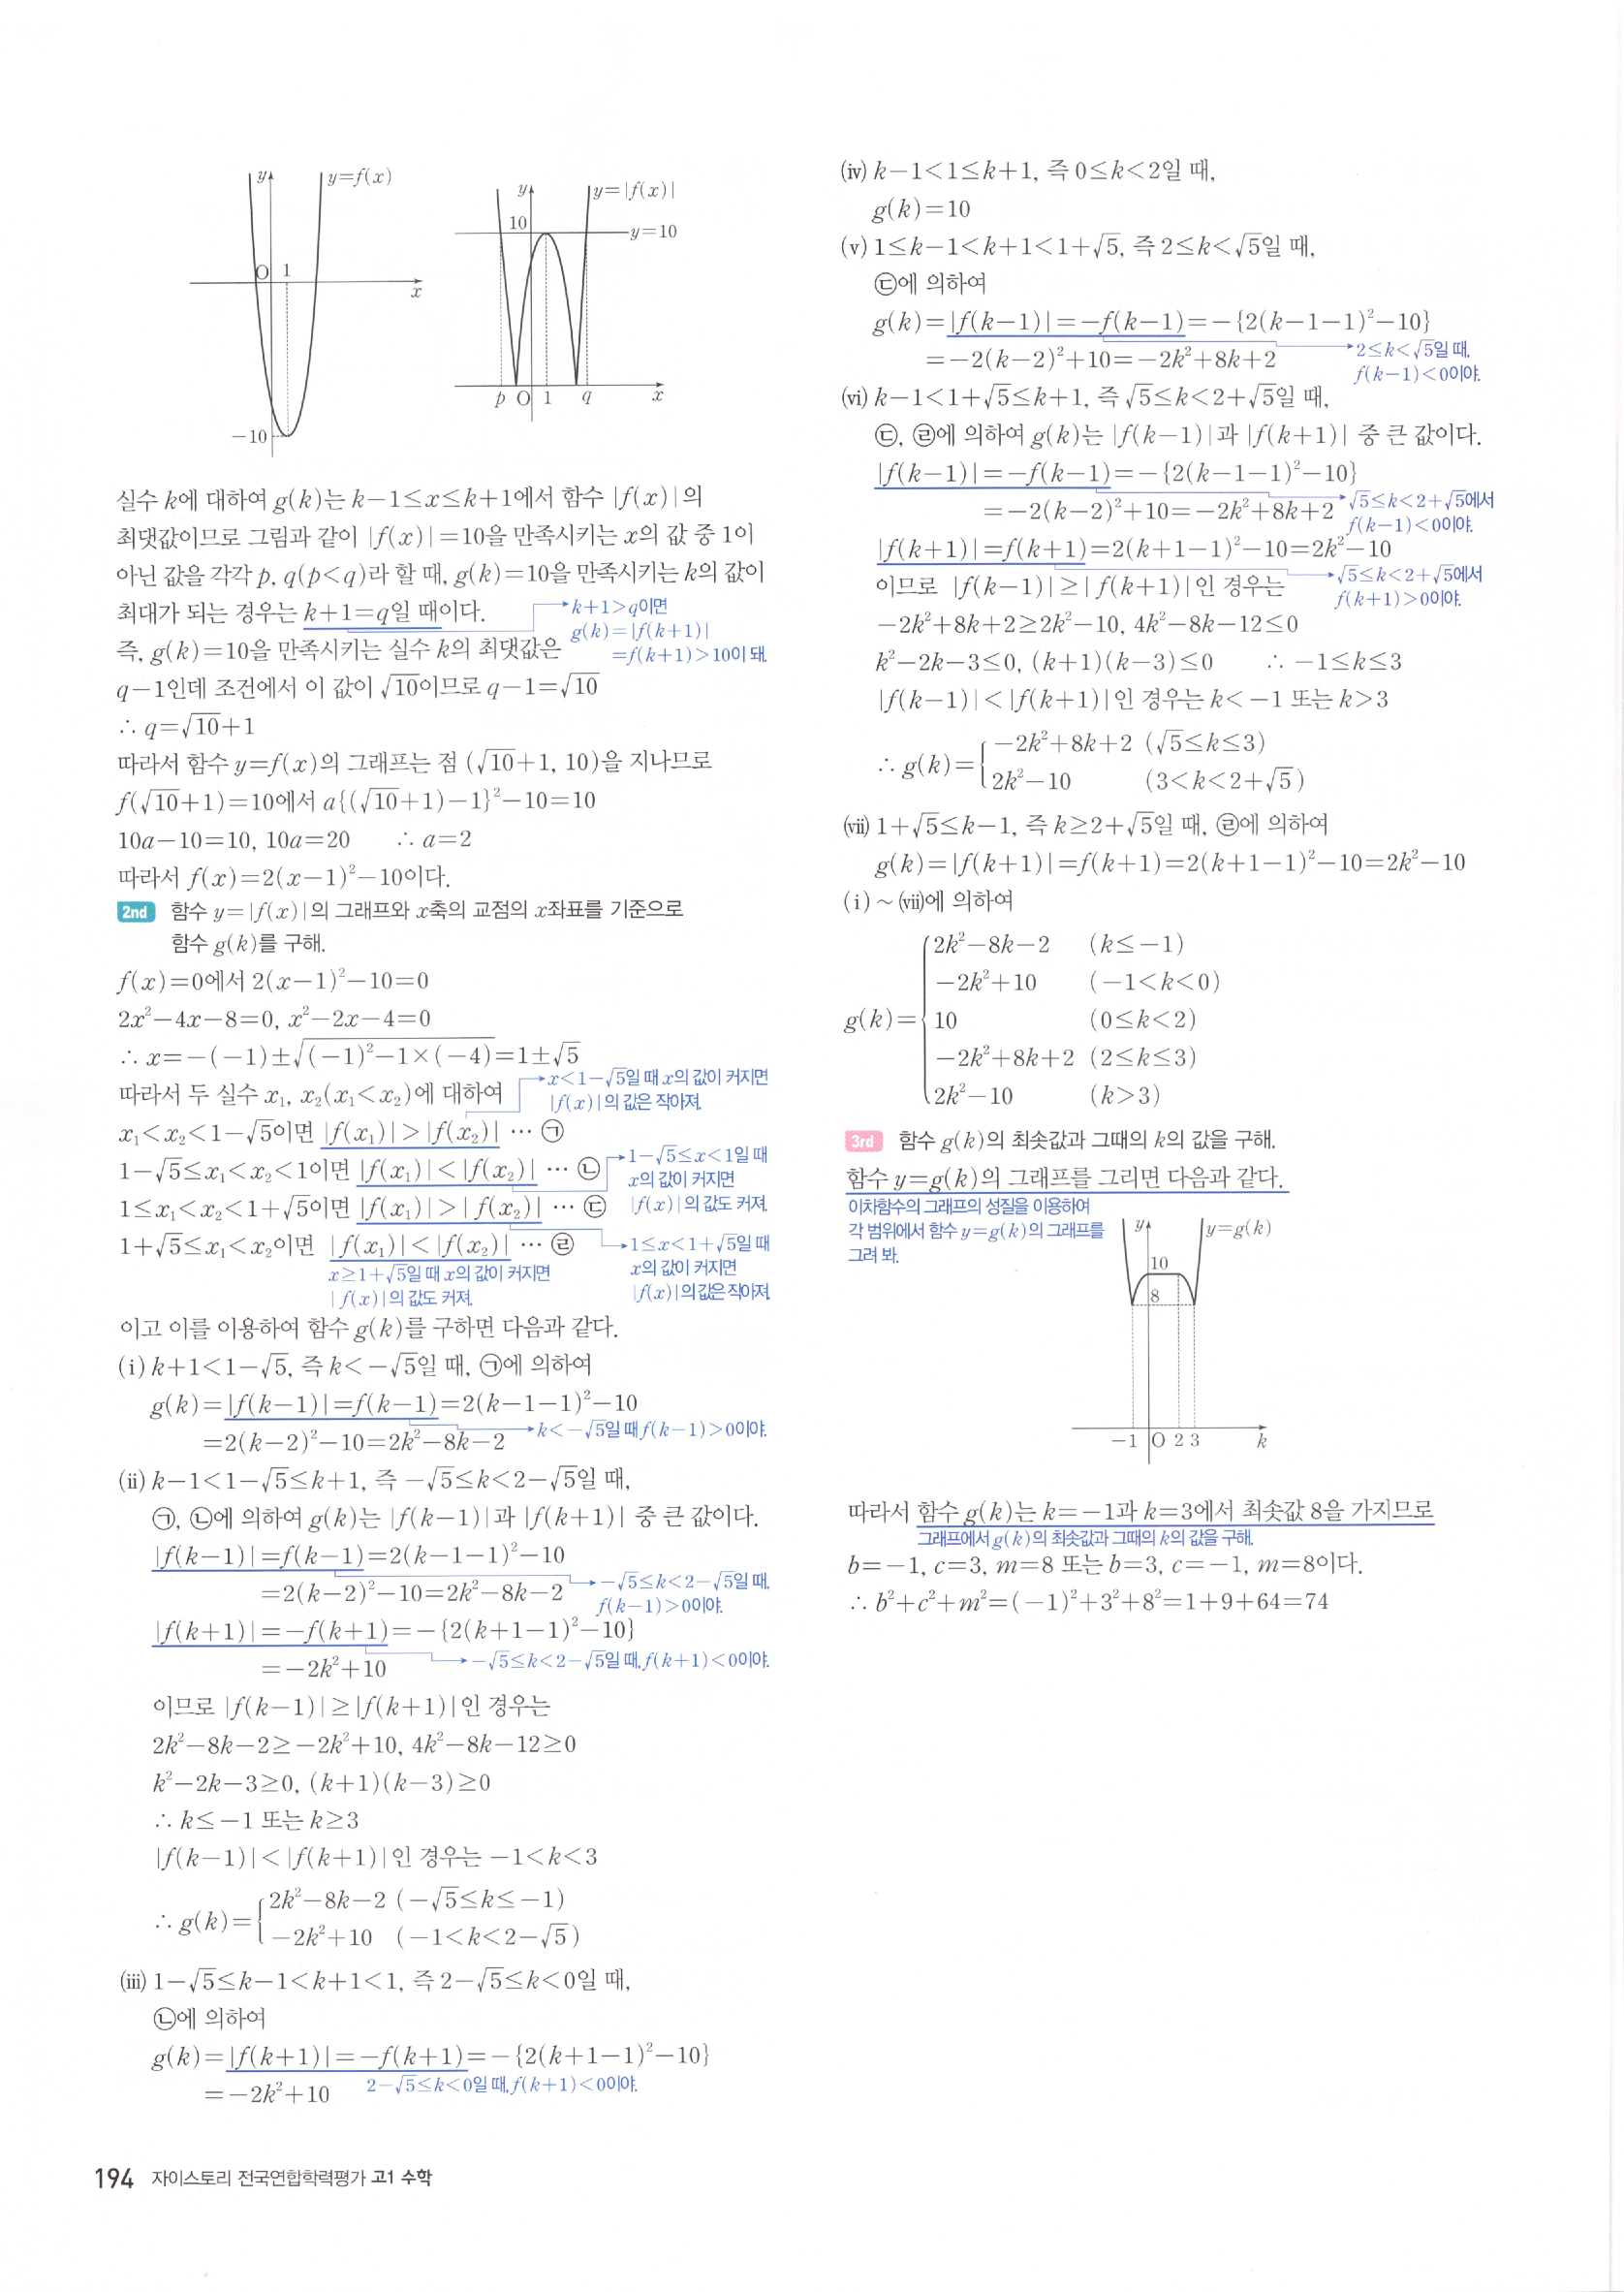 y
y=f(x)
O
1
x
-10
y
y=|f(x)|
10
y=10
p
O
1
q
x
실수 k에 대하여 g(k)는 k-1≤x≤k+1에서 함수 |f(x)|의
최댓값이므로 그림과 같이 |f(x)|=10을 만족시키는 x의 값 중 1이
아닌 값을 각각 p, q(p<q)라 할 때, g(k)=10을 만족시키는 k의 값이
최대가 되는 경우는 k+1=q일 때이다.
k+1>q이면
g(k)=|f(k+1)|
=f(k+1)>10이 돼.
즉, g(k)=10을 만족시키는 실수 k의 최댓값은
q-1인데 조건에서 이 값이 √10이므로 q-1=√10
∴ q=√10+1
따라서 함수 y=f(x)의 그래프는 점 (√10+1, 10)을 지나므로
f(√10+1)=10에서 a{(√10+1)-1}²-10=10
10a-10=10, 10a=20 ∴ a=2
따라서 f(x)=2(x-1)²-10이다.
2nd 함수 y=|f(x)|의 그래프와 x축의 교점의 x좌표를 기준으로
함수 g(k)를 구해.
f(x)=0에서 2(x-1)²-10=0
2x²-4x-8=0, x²-2x-4=0
∴ x=-(-1)±√((-1)²-1×(-4))=1±√5
따라서 두 실수 x₁, x₂(x₁<x₂)에 대하여
x<1-√5일 때 x의 값이 커지면
|f(x)|의 값은 작아져.
x₁<x₂<1-√5이면 |f(x₁)|>|f(x₂)| … ㉠
1-√5≤x₁<x₂<1이면 |f(x₁)|<|f(x₂)| … ㉡
1-√5≤x<1일 때
x의 값이 커지면
|f(x)|의 값도 커져.
1≤x₁<x₂<1+√5이면 |f(x₁)|>|f(x₂)| … ㉢
1≤x<1+√5일 때
x의 값이 커지면
|f(x)|의 값은 작아져.
1+√5≤x₁<x₂이면 |f(x₁)|<|f(x₂)| … ㉣
x≥1+√5일 때 x의 값이 커지면
|f(x)|의 값도 커져.
이고 이를 이용하여 함수 g(k)를 구하면 다음과 같다.
(i) k+1<1-√5, 즉 k<-√5일 때, ㉠에 의하여
g(k)=|f(k-1)|=f(k-1)=2(k-1-1)²-10
=2(k-2)²-10=2k²-8k-2
k<-√5일 때 f(k-1)>0이야.
(ii) k-1<1-√5≤k+1, 즉 -√5≤k<2-√5일 때,
㉠, ㉡에 의하여 g(k)는 |f(k-1)|과 |f(k+1)| 중 큰 값이다.
|f(k-1)|=f(k-1)=2(k-1-1)²-10
=2(k-2)²-10=2k²-8k-2
-√5≤k<2-√5일 때,
f(k-1)>0이야.
|f(k+1)|=-f(k+1)=-{2(k+1-1)²-10}
=-2k²+10
-√5≤k<2-√5일 때, f(k+1)<0이야.
이므로 |f(k-1)|≥|f(k+1)|인 경우는
2k²-8k-2≥-2k²+10, 4k²-8k-12≥0
k²-2k-3≥0, (k+1)(k-3)≥0
∴ k≤-1 또는 k≥3
|f(k-1)|<|f(k+1)|인 경우는 -1<k<3
∴ g(k)={
2k²-8k-2 (-√5≤k≤-1)
-2k²+10 (-1<k<2-√5)
(iii) 1-√5≤k-1<k+1<1, 즉 2-√5≤k<0일 때,
㉡에 의하여
g(k)=|f(k+1)|=-f(k+1)=-{2(k+1-1)²-10}
=-2k²+10
2-√5≤k<0일 때, f(k+1)<0이야.
(iv) k-1<1≤k+1, 즉 0≤k<2일 때,
g(k)=10
(v) 1≤k-1<k+1<1+√5, 즉 2≤k<√5일 때,
㉢에 의하여
g(k)=|f(k-1)|=-f(k-1)=-{2(k-1-1)²-10}
=-2(k-2)²+10=-2k²+8k+2
2≤k<√5일 때,
f(k-1)<0이야.
(vi) k-1<1+√5≤k+1, 즉 √5≤k<2+√5일 때,
㉢, ㉣에 의하여 g(k)는 |f(k-1)|과 |f(k+1)| 중 큰 값이다.
|f(k-1)|=-f(k-1)=-{2(k-1-1)²-10}
=-2(k-2)²+10=-2k²+8k+2
√5≤k<2+√5에서
f(k-1)<0이야.
|f(k+1)|=f(k+1)=2(k+1-1)²-10=2k²-10
이므로 |f(k-1)|≥|f(k+1)|인 경우는
√5≤k<2+√5에서
f(k+1)>0이야.
-2k²+8k+2≥2k²-10, 4k²-8k-12≤0
k²-2k-3≤0, (k+1)(k-3)≤0 ∴ -1≤k≤3
|f(k-1)|<|f(k+1)|인 경우는 k<-1 또는 k>3
∴ g(k)={
-2k²+8k+2 (√5≤k≤3)
2k²-10 (3<k<2+√5)
(vii) 1+√5≤k-1, 즉 k≥2+√5일 때, ㉣에 의하여
g(k)=|f(k+1)|=f(k+1)=2(k+1-1)²-10=2k²-10
(i)~(vii)에 의하여
g(k)={
2k²-8k-2 (k≤-1)
-2k²+10 (-1<k<0)
10 (0≤k<2)
-2k²+8k+2 (2≤k≤3)
2k²-10 (k>3)
3rd 함수 g(k)의 최솟값과 그때의 k의 값을 구해.
함수 y=g(k)의 그래프를 그리면 다음과 같다.
이차함수의 그래프의 성질을 이용하여
각 범위에서 함수 y=g(k)의 그래프를
그려 봐.
y
y=g(k)
10
8
-1
O
2
3
k
따라서 함수 g(k)는 k=-1과 k=3에서 최솟값 8을 가지므로
그래프에서 g(k)의 최솟값과 그때의 k의 값을 구해.
b=-1, c=3, m=8 또는 b=3, c=-1, m=8이다.
∴ b²+c²+m²=(-1)²+3²+8²=1+9+64=74
194 자이스토리 전국연합학력평가 고1 수학